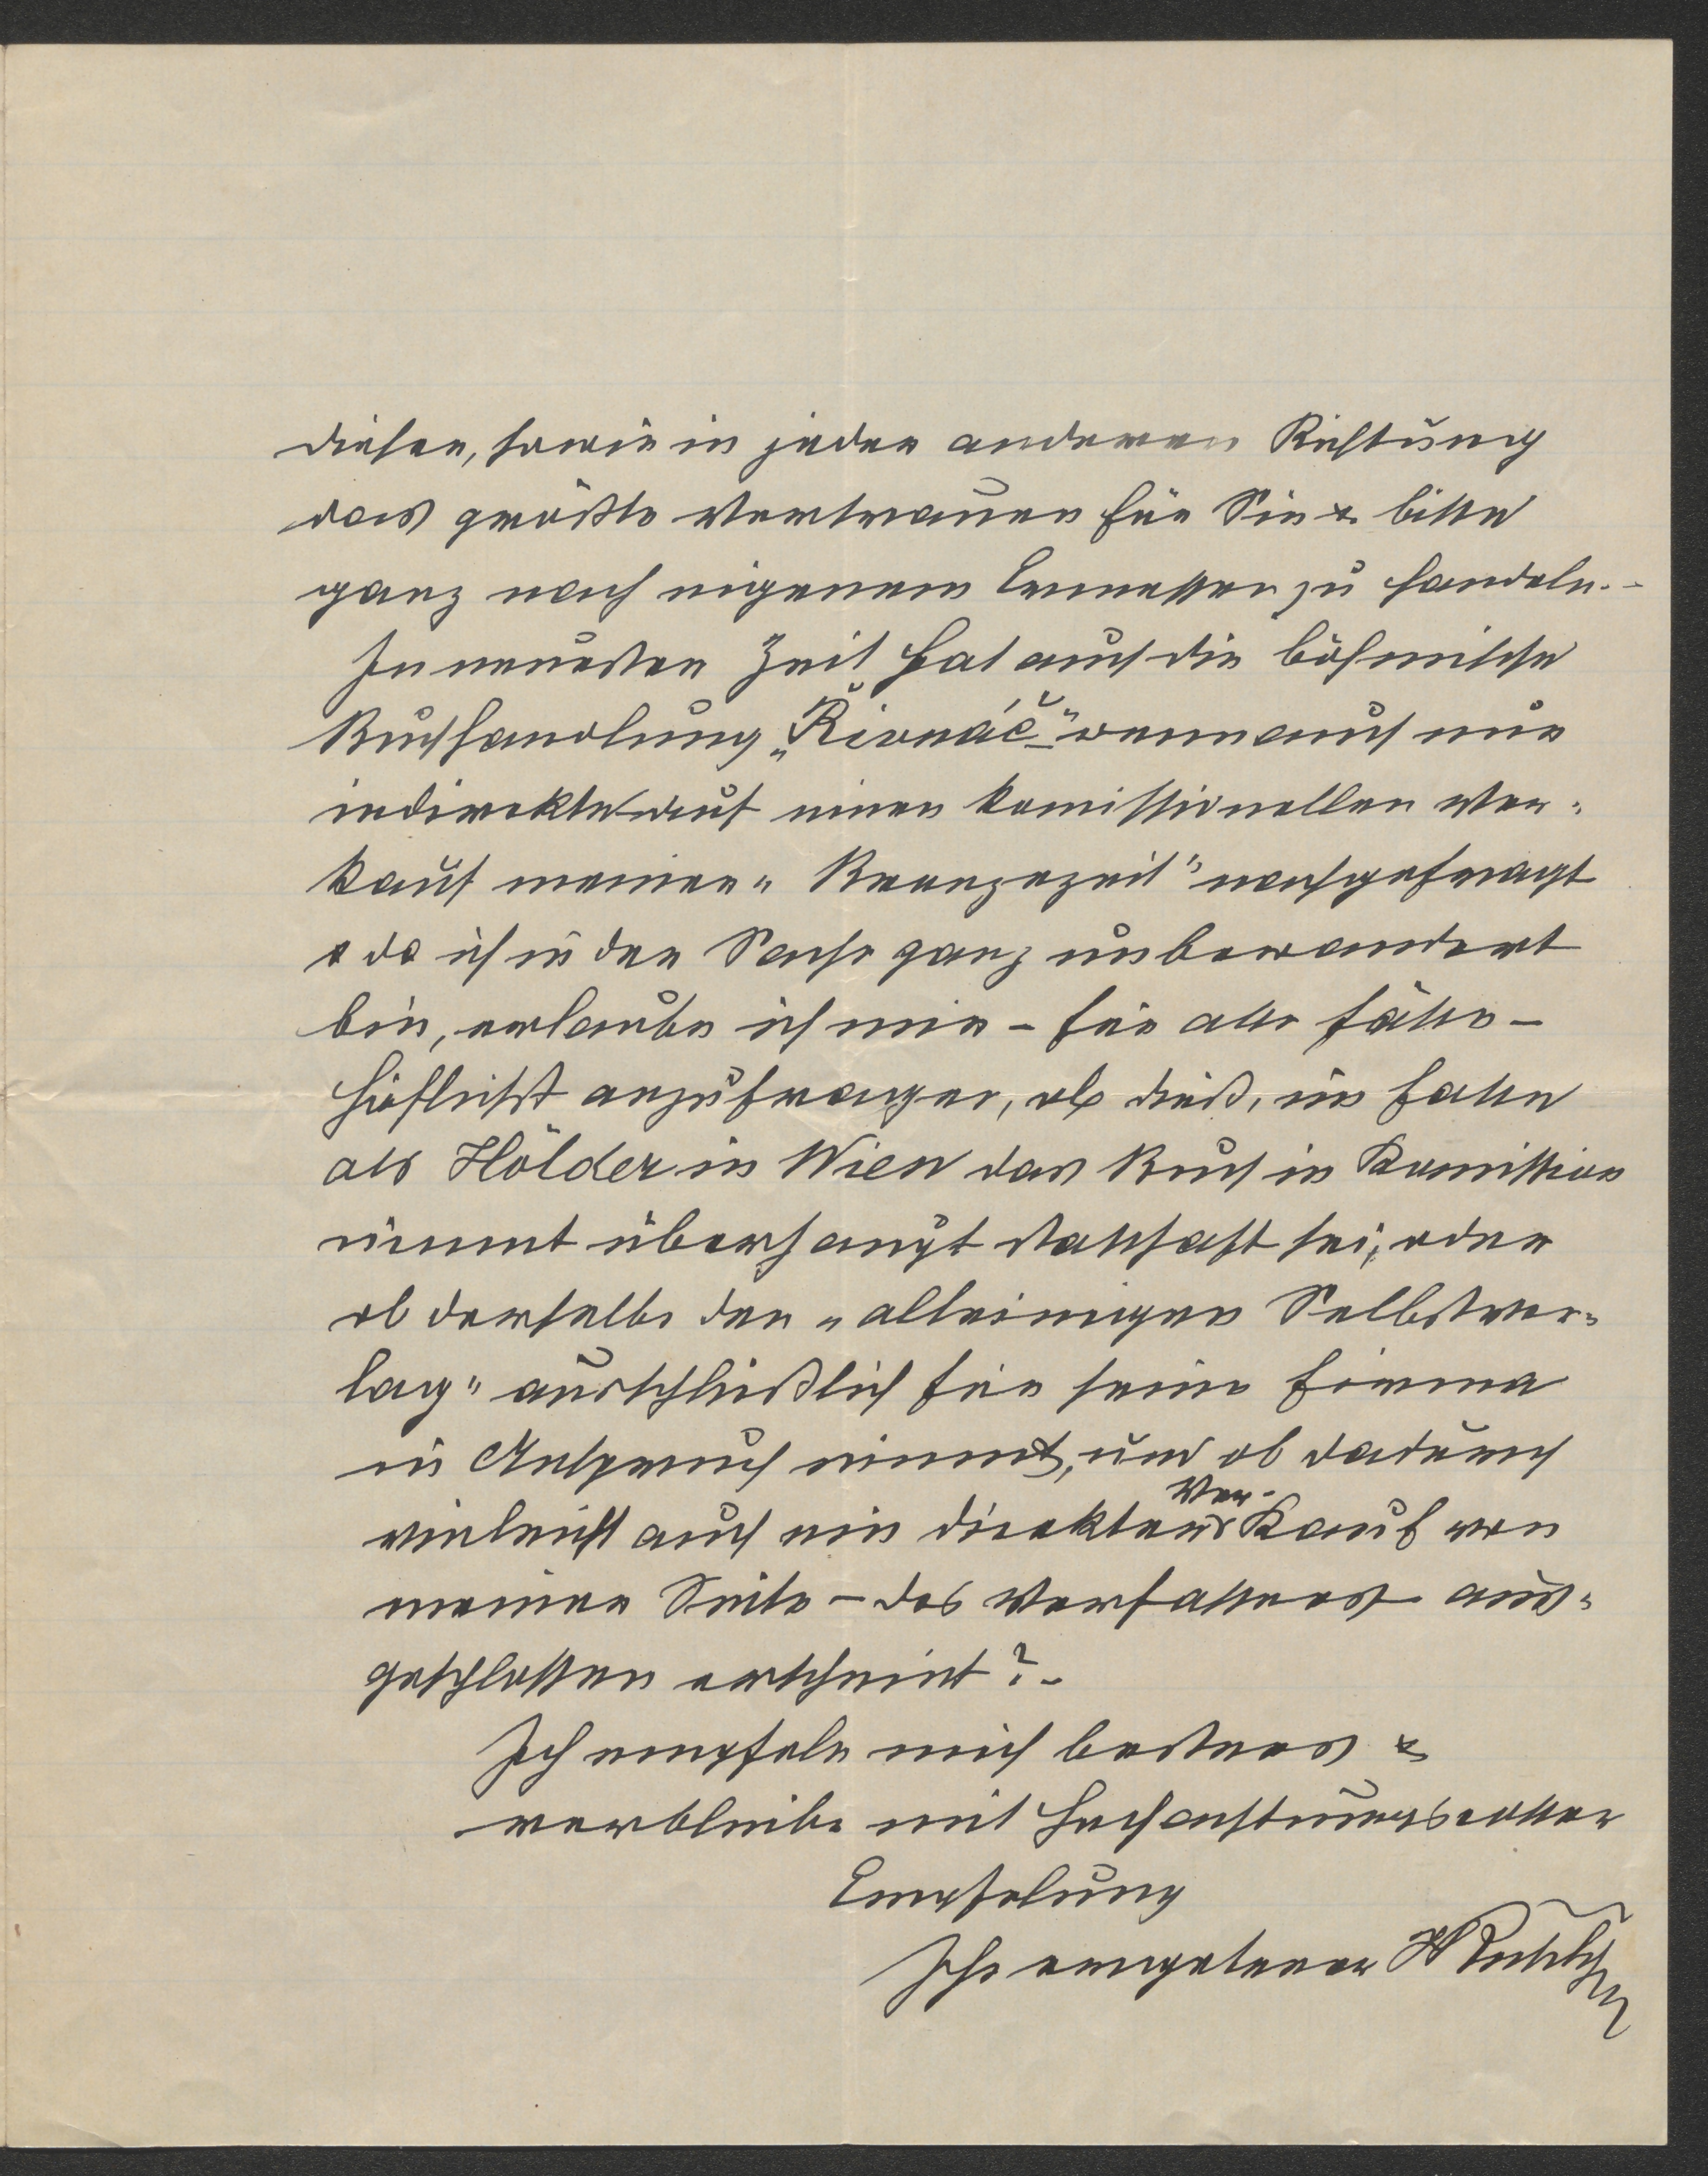 dieser, sowie in jeder anderen Richtung
das größte Vertrauen für Sie & bitte
ganz nach eigenem Ermessen zu handeln. -
In neuester Zeit hat auch die böhmische
Buchhandlung „Řivnáč" wenn auch nur
indirekte auf einen komissionellen Ver-
kauf meiner „Bronzezeit" nachgefragt
& da ich in der Sache ganz unbewandert
bin, erlaube ich mir - für alle Fälle -
höflichst anzufragen, ob dieß, im Falle
als Hölder in Wien das Buch in Komission
nimmt überhaupt statthaft sei, oder
ob derselbe den „alleinigen Selbstver-
lag" ausschließlich für seine Firma
in Anspruch nimmt, und ob dadurch
vieleicht auch ein direkter Ver-Kauf von
meiner Seite - des Verfassers aus-
geschlossen erscheint? -
Ich empfele mich bestens &
verbleibe mit hochachtungsvoller
Empfelung
Ihr ergebener